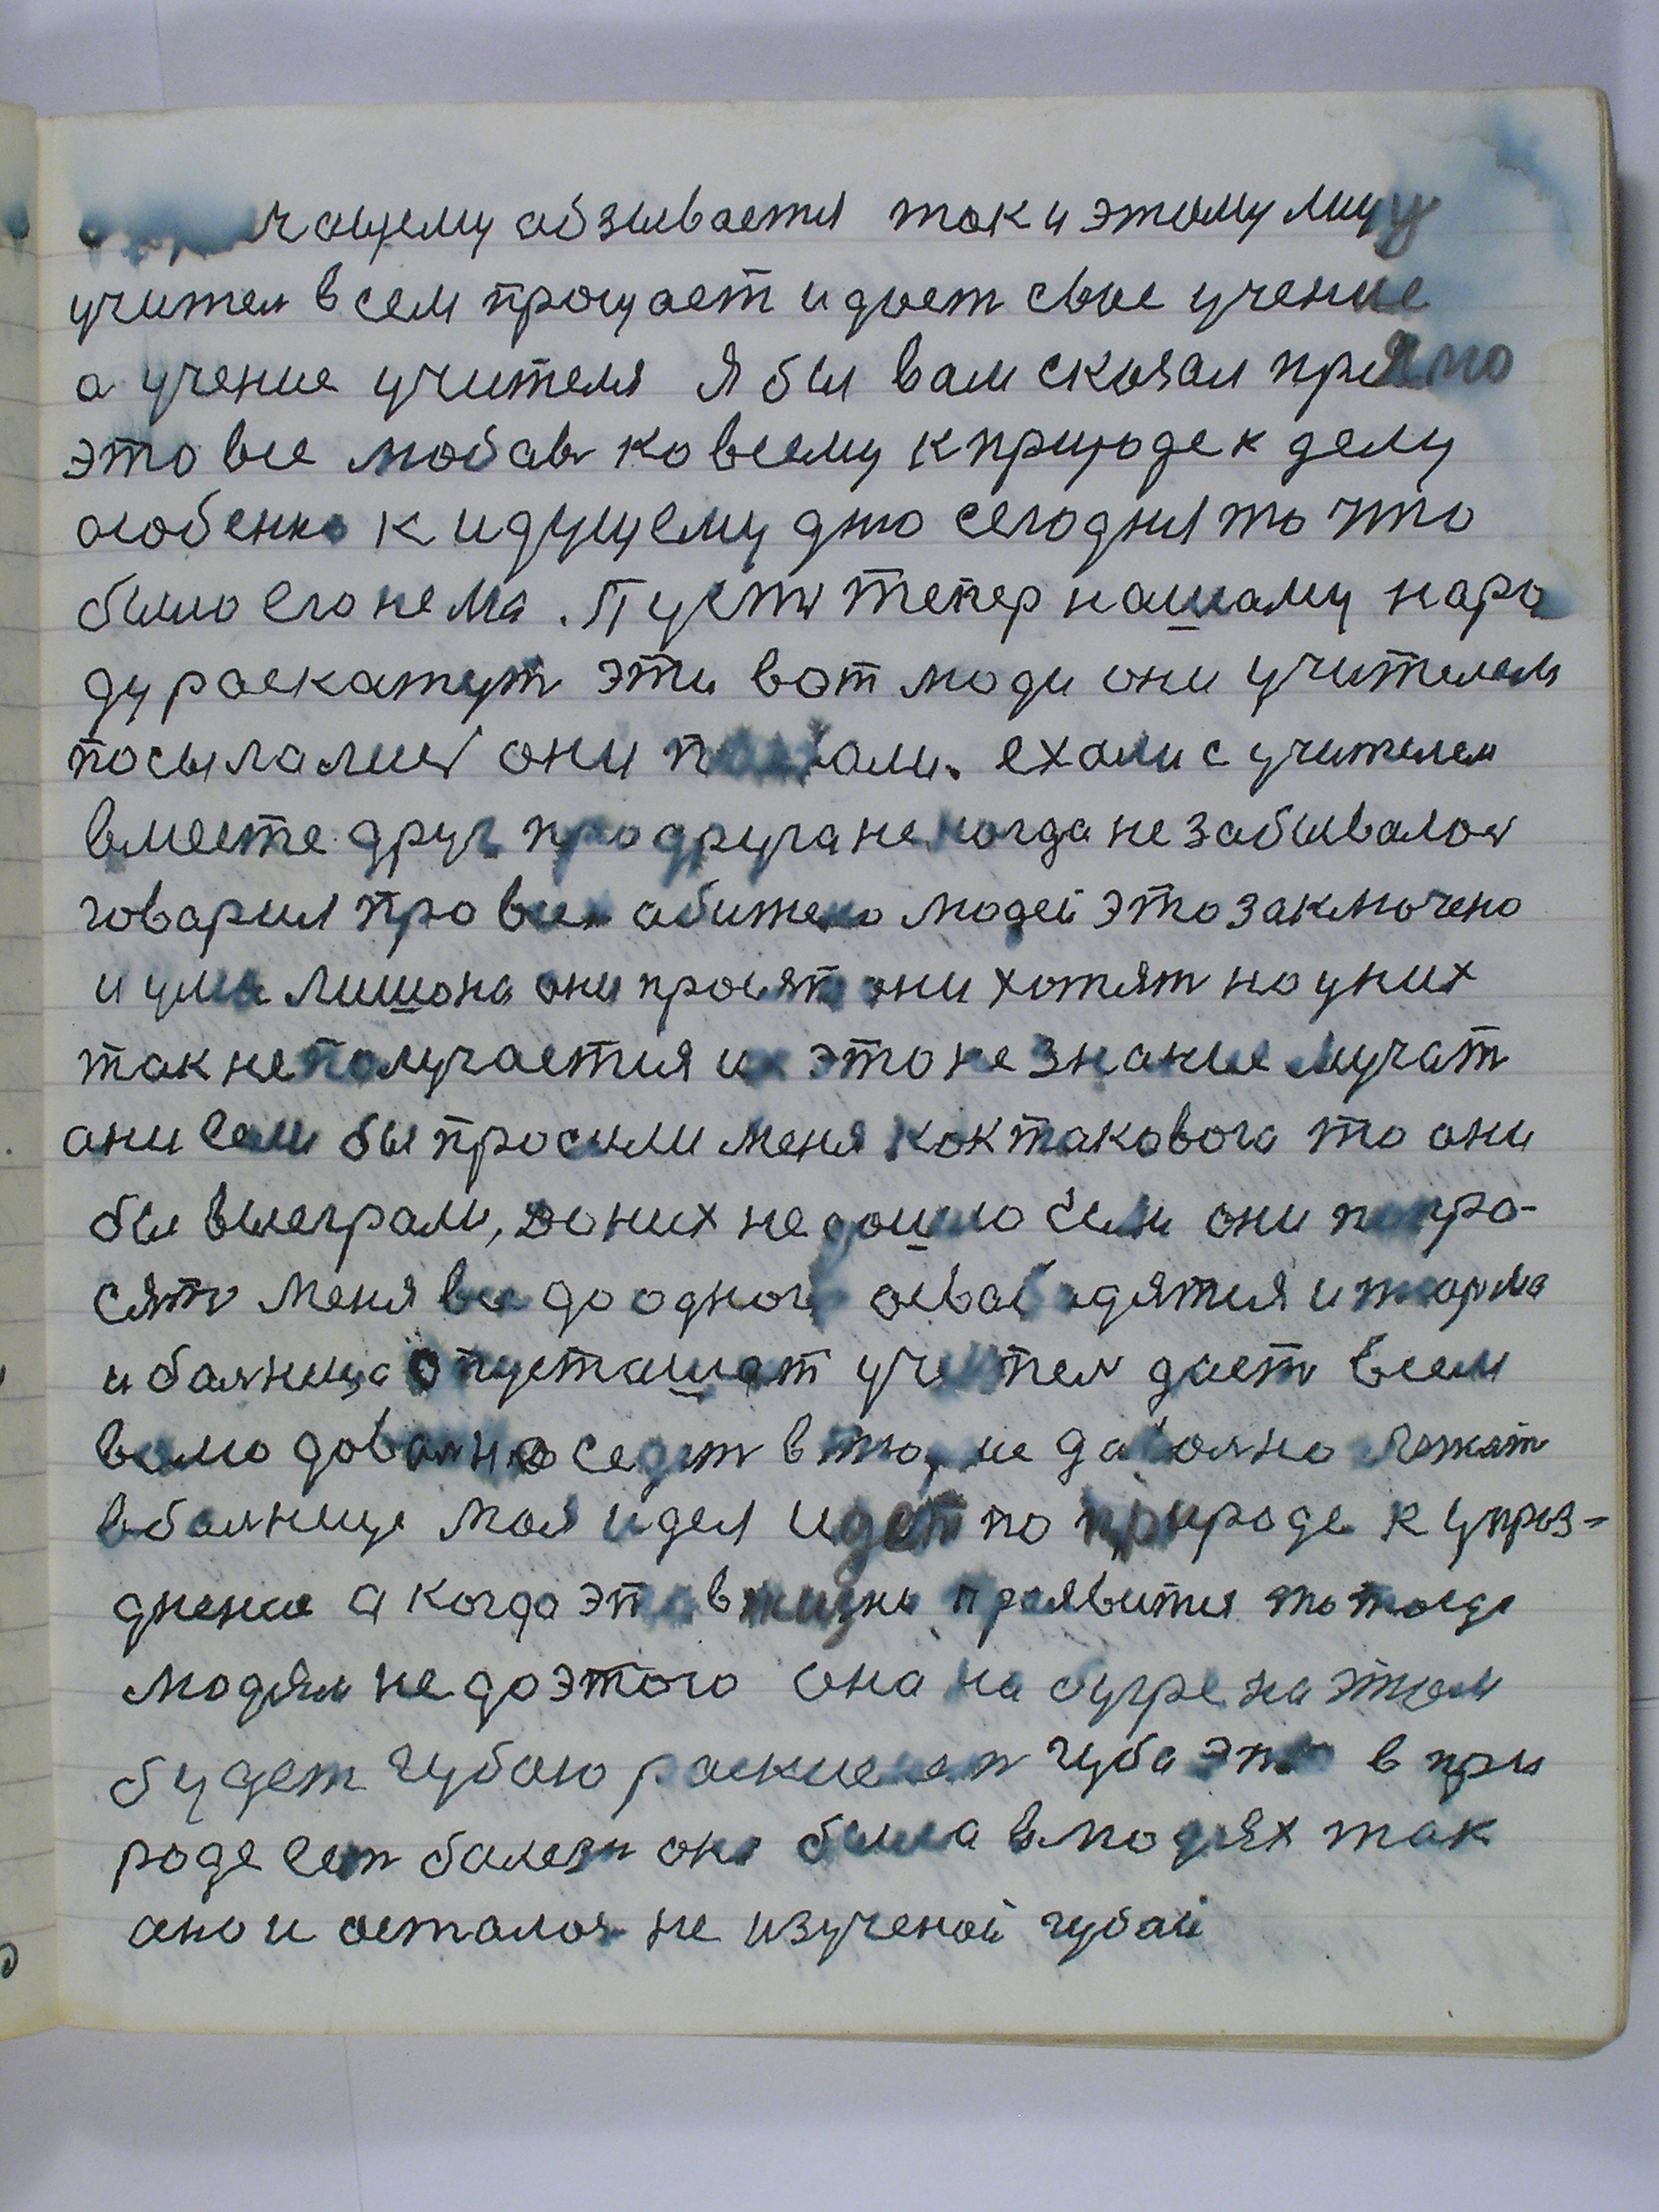 чащему абзывается так и этому миру
учител всем прощает и дает свое учение
а учение учителя Я бы вам сказал прямо
это все любавь ко всему к природе к делу
особенно к идущему дню сегодня то что
было его нема. Пусть тепер нашаму наро
ду раскажут эти вот люди они учителем
посылались они поехали. ехали с учителем
вместе друг про друга не когда не забывалось
говарил про всех абижено людей это заключено
и ума лишона они просят они хотят но у них
так не получается их это не знание мучат
ани если бы просили меня как таковога то они
бы выеграли, до них не дошло Если они попро-
сять меня все до одного освабодятся и тюрма
и балница опусташат учител дает всем
волю доволно седет в тюрме даволно лежат
в болнице моя идея идет по природе к упраз-
днение а когда это в жизнь проявится то тогда
людям не до этого она на бугре на этом
будет Чубою раскисает чуба это в при
роде ест балезн она была в людях так
оно и осталось не изученой чубай